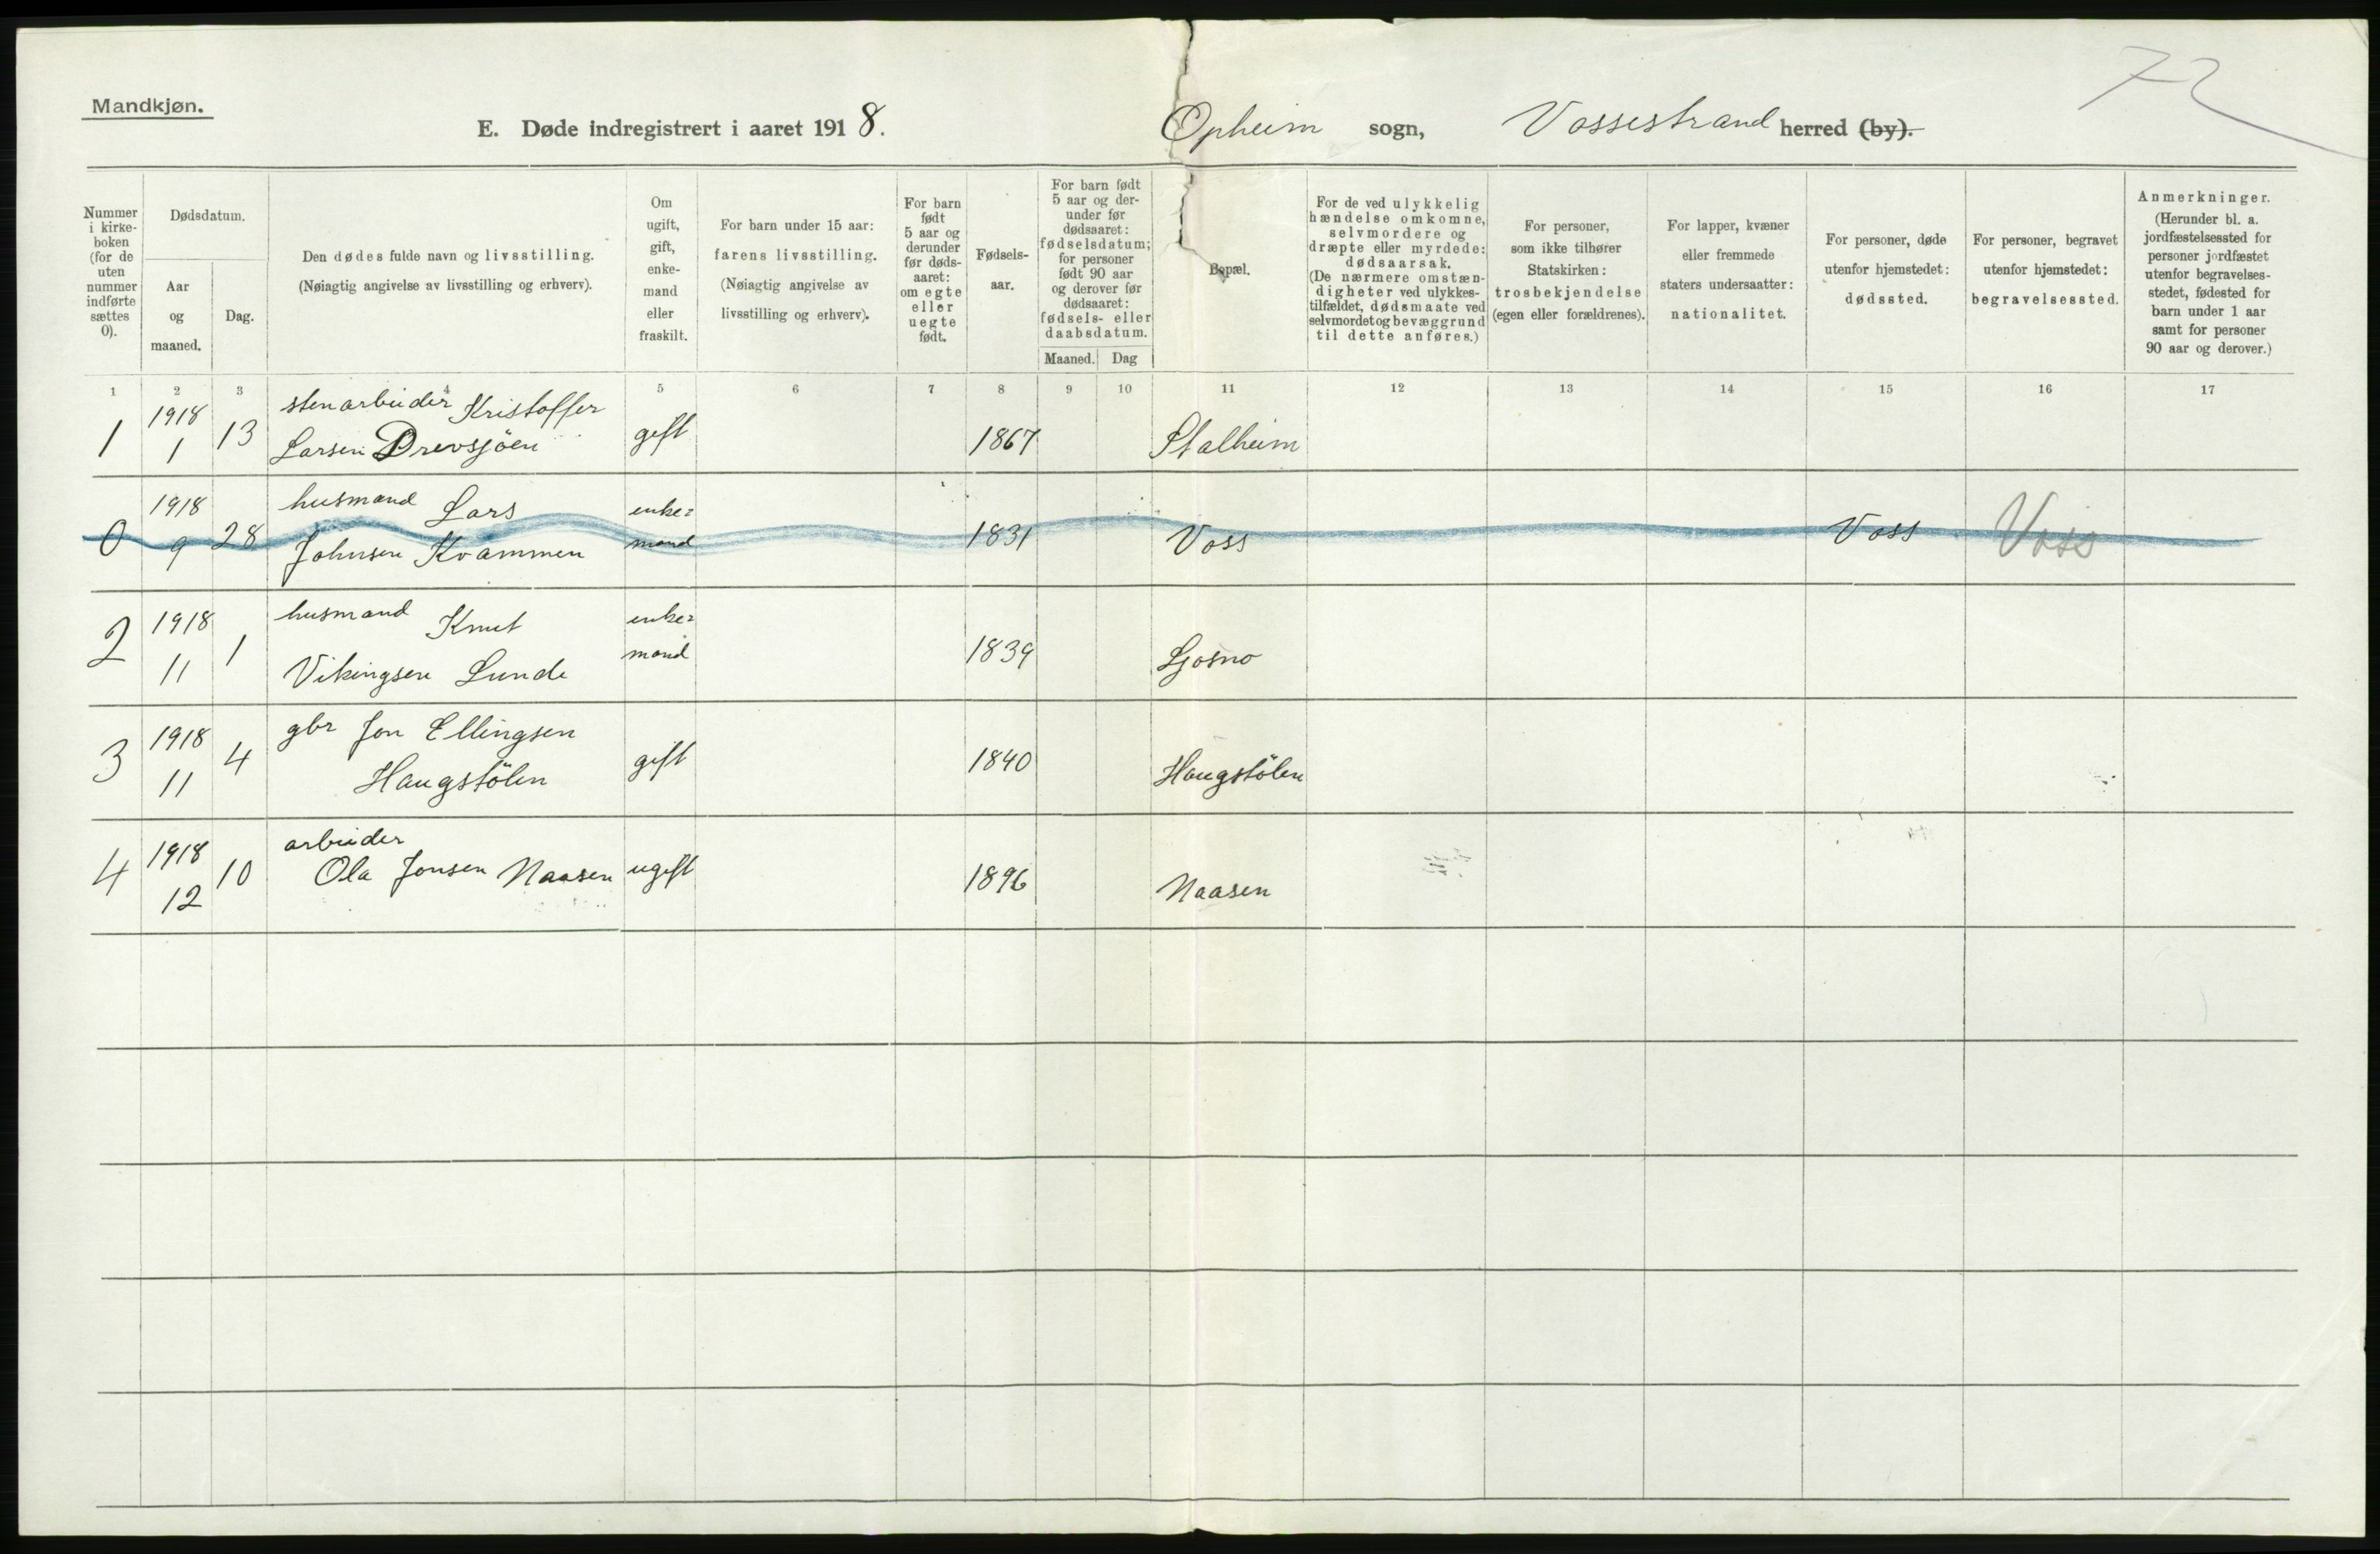 72
Mandkjøn.
E. Døde indregistrert i aaret 1918. Opheim sogn, Vossestrand herred (by).
Nummer i kirke-boken (for de uten nummer indførte sættes 0).
Dødsdatum.
Aar og maaned.
Dag.
Den dødes fulde navn og livsstilling.
(Nøiagtig angivelse av livsstilling og erhverv).
Om ugift, gift, enke-mand eller fraskilt.
For barn under 15 aar:
farens livsstilling.
(Nøiagtig angivelse av livsstilling og erhverv).
For barn født 5 aar og derunder før døds-aaret: om egte eller uegte født.
Fødsels-aar.
For barn født 5 aar og der-under før dødsaaret: fødselsdatum; for personer født 90 aar og derover før dødsaaret: fødsels- eller daabsdatum.
Maaned. Dag
Bopæl.
For de ved ulykkelig hændelse omkomne, selvmordere og dræpte eller myrdede: dødsaarsak.
(De nærmere omstæn-digheter ved ulykkes-tilfældet, dødsmaate ved selvmordet og bevæggrund til dette anføres.)
For personer, som ikke tilhører Statskirken: trosbekjendelse (egen eller forældrenes).
For lapper, kvæner eller fremmede staters undersaatter: nationalitet.
For personer, døde utenfor hjemstedet: dødssted.
For personer, begravet utenfor hjemstedet: begravelsessted.
Anmerkninger.
(Herunder bl. a. jordfæstelsessted for personer jordfæstet utenfor begravelses-stedet, fødested for barn under 1 aar samt for personer 90 aar og derover.)
1 2 3 4 5 6 7 8 9 10 11 12 13 14 15 16 17
1 1918 1 13 stenarbeider Kristoffer Larsen Drevsjöen gift 1867 Stalheim
0 1918 9 28 husmand Lars Johnsen Kvammen enke=mand 1831 Voss Voss Voss
2 1918 11 1 husmand Knut Vikingsen Lunde enke=mand 1839 Ljosno
3 1918 11 4 gbr Jon Ellingsen Haugstölen gift 1840 Haugstölen
4 1918 12 10 arbeider Ola Jonsen Naasen ugift 1896 Naasen